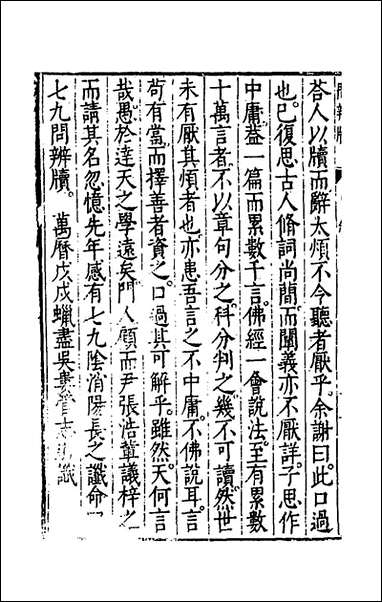 荅人以牘而辭太煩不令聽者厭乎余謝曰此口過
也已復思古人脩詞尚簡而闡義亦不厭詳子思作
中庸葢一篇而累數千言佛經一會說法至有累數
十萬言者不以章句分之科分判之幾不可讀然世
未有厭其煩者也亦患吾言之不中庸不佛說耳言
苟有當而擇善者資之口過其可解乎雖然天何言
哉愚於達天之學遠矣門人顧而尹張浩輩議梓之
而請其名忽憶先年感有七九陰消陽長之讖命
七九問辨牘 萬曆戊戌蜡盡吳婁管志道識